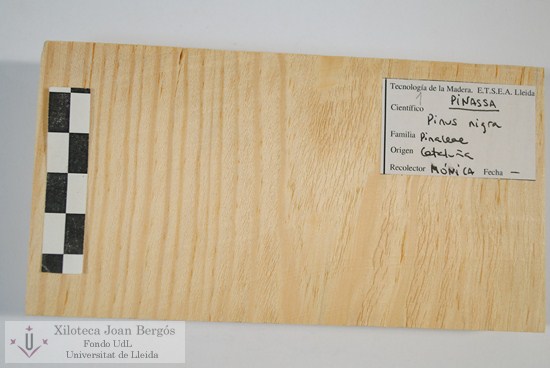 Tecnología de la Madera. E.T.S.E.A. Lleida
PINASSA
Científico Pinus nigra
Familia Pinaceae
Origen Cataluña
Recolector MÓNICA Fecha —
Xiloteca Joan Bergós
Fondo UdL
Universitat de Lleida